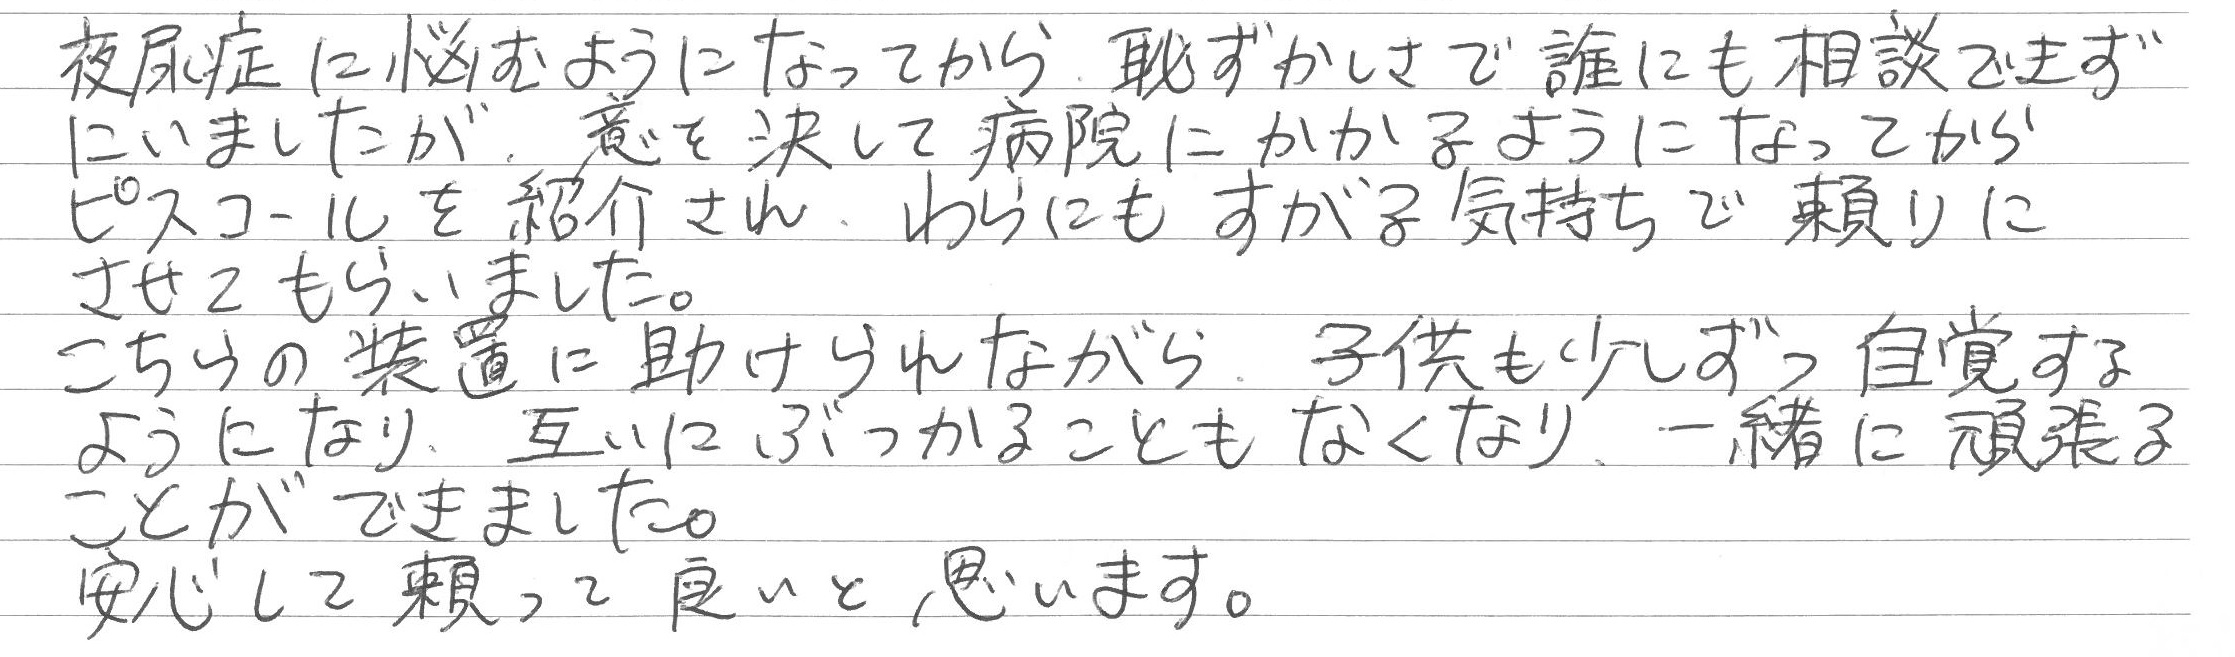 夜尿症に悩むようになってから、恥ずかしさで誰にも相談できず
にいましたが、意を決して病院にかかるようになってから
ピスコールを紹介され、わらにもすがる気持ちで頼りに
させてもらいました。
こちらの装置に助けられながら、子供も少しずつ自覚する
ようになり、互いにぶつかることもなくなり、一緒に頑張る
ことができました。
安心して頼って良いと思います。